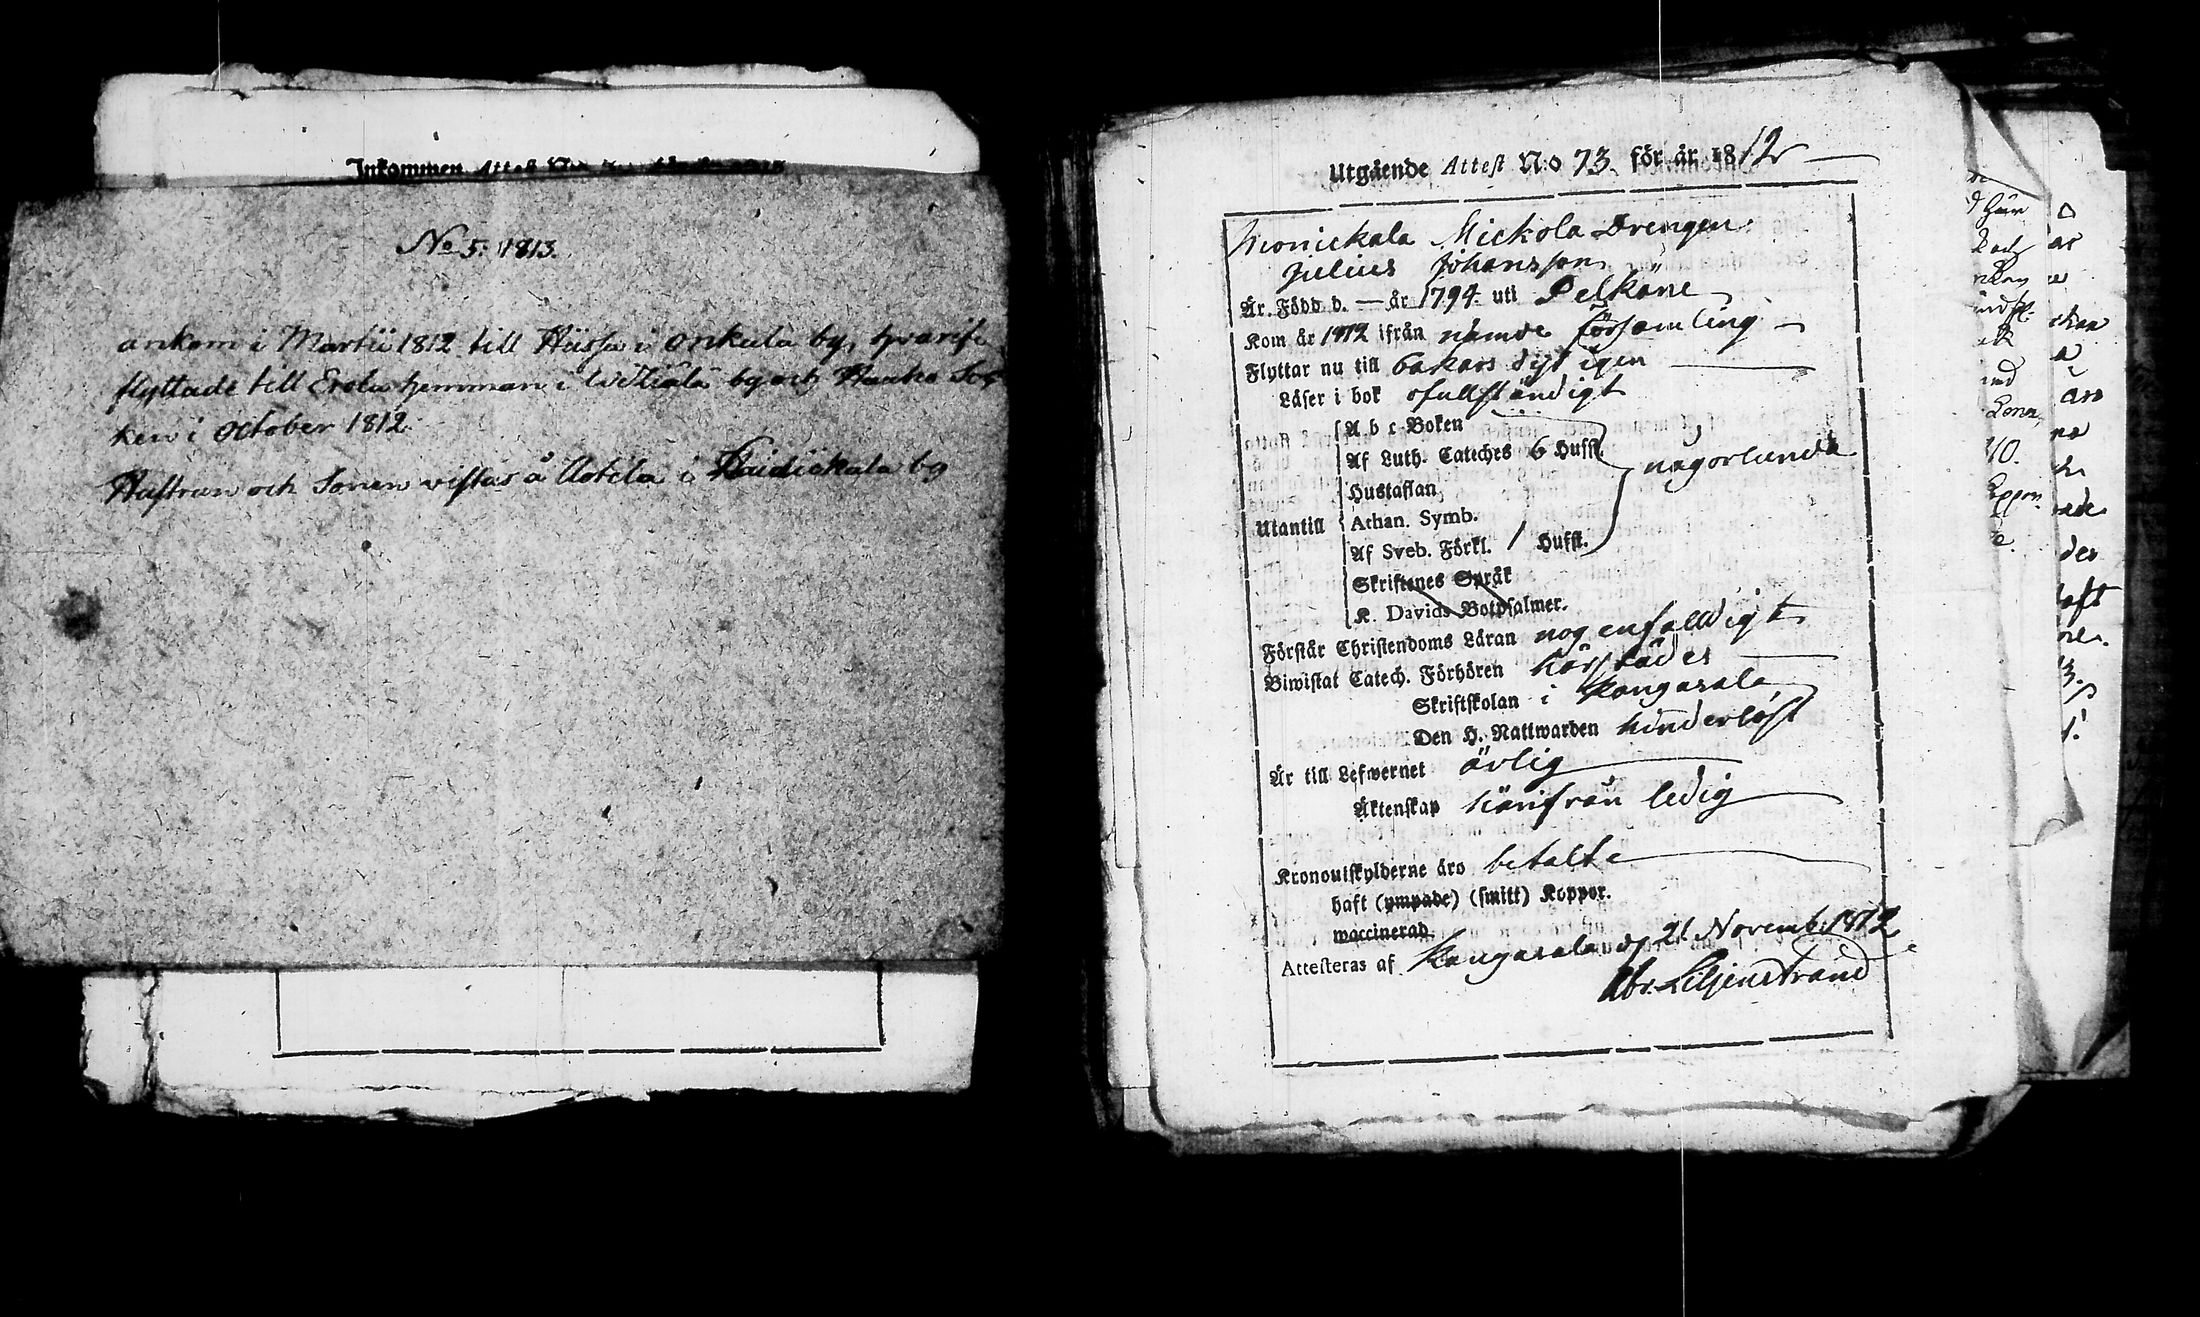 Inkommen Attest
No 5. 1813.
ankom i Martii 1812 till Hüssa i Onkala by, hvarifr
flyttade till Erola hemman i Wttiälä by och Hauho Soc
ken i October 1812.
Hustrun och Sonen vistas å Aotila i Haidickala by
Utgående Attest N:o 73. för år 1812
Mickola Drengen
Julius Johansson
Är Född d. — år 1794 uti Pelkäne
Kom år 1812 ifrån nämde församling
Flyttar nu till bakars dyt igen
Läser i bok ofullständigt
A b c-Boken
Af Luth. Cateches 6 Hufst.
någorlunda
Hustaflan
Utantill
Athan. Symb.
Af Sveb. Förkl. 1 Hufst.
Skriftenes Språk
K. Davids Botpsalmer.
Förstår Christendoms Läran nog enfaldigt
Biwistat Catech. Förhören härstädes
Skriftskolan i Kangasala
Den H. Nattwarden hinderlöst
Är till Lefwernet ärlig
Äktenskap härifrån ledig
Kronoutskylderne äro betalte
haft (ympade) (smitt) Koppor.
waccinerad
Attesteras af Kangasala d. 21 Novemb. 1812
Abr. Liljenstrand